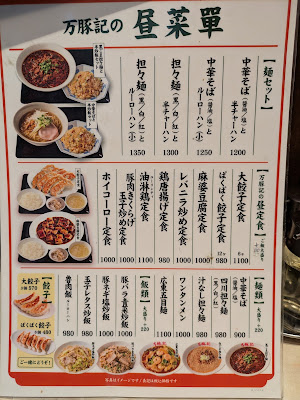 万豚記の 昼菜單
【麺セット】
中華そば(醤油/塩)と
半チャーハン
1200
中華そば(醤油/塩)と
ルーローハン(小)
1250
担々麺(黒/白/紅)と
半チャーハン
1300
担々麺(黒/白/紅)と
ルーローハン(小)
1350
万豚記の昼定食
大餃子定食
6ヶ 1100
ぱくぱく餃子定食
12ヶ 980
麻婆豆腐定食
1000
レバニラ炒め定食
1000
鶏唐揚げ定食
1000
油淋鶏定食
1100
豚肉きくらげ
玉子炒め定食
1000
ホイコーロー定食
1000
【麺類】
大盛り +220
中華そば(醤油/塩)
900
四川担々麺(黒/白/紅)
980
汁なし担々麺
980
ワンタンメン
1100
広東五目麺
1100
【飯類】
大盛り +220
豚バラ青菜炒飯
980
豚ネギ塩炒飯
1000
玉子レタス炒飯
980
魯肉飯
980
【餃子】
大餃子
3個 570
ぱくぱく餃子
6個 480
ご一緒にどうぞ!
写真はイメージです/表記は税込価格です